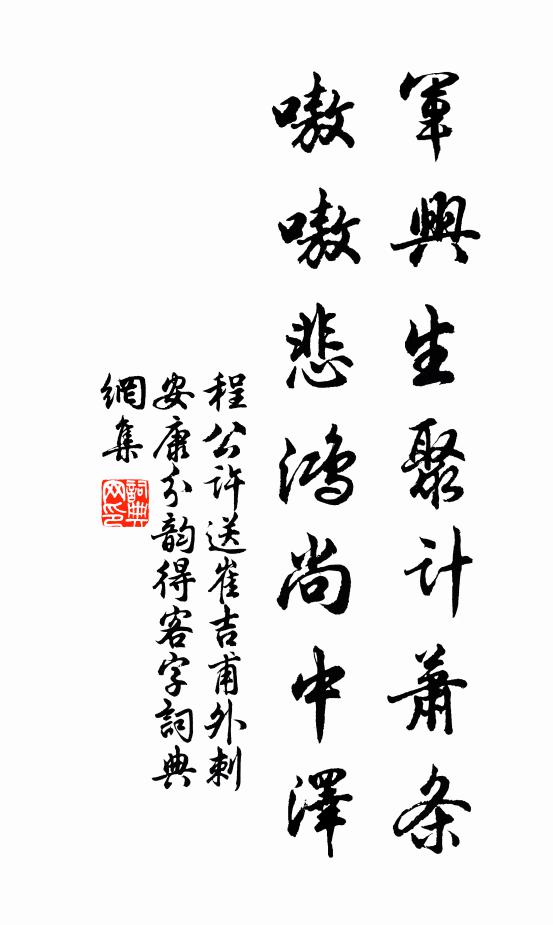 軍興生聚計蕭条
嗷嗷悲鴻尚中澤
程公許送崔吉甫外刺
安康分韵得客字詞典
網集
詞典
网印